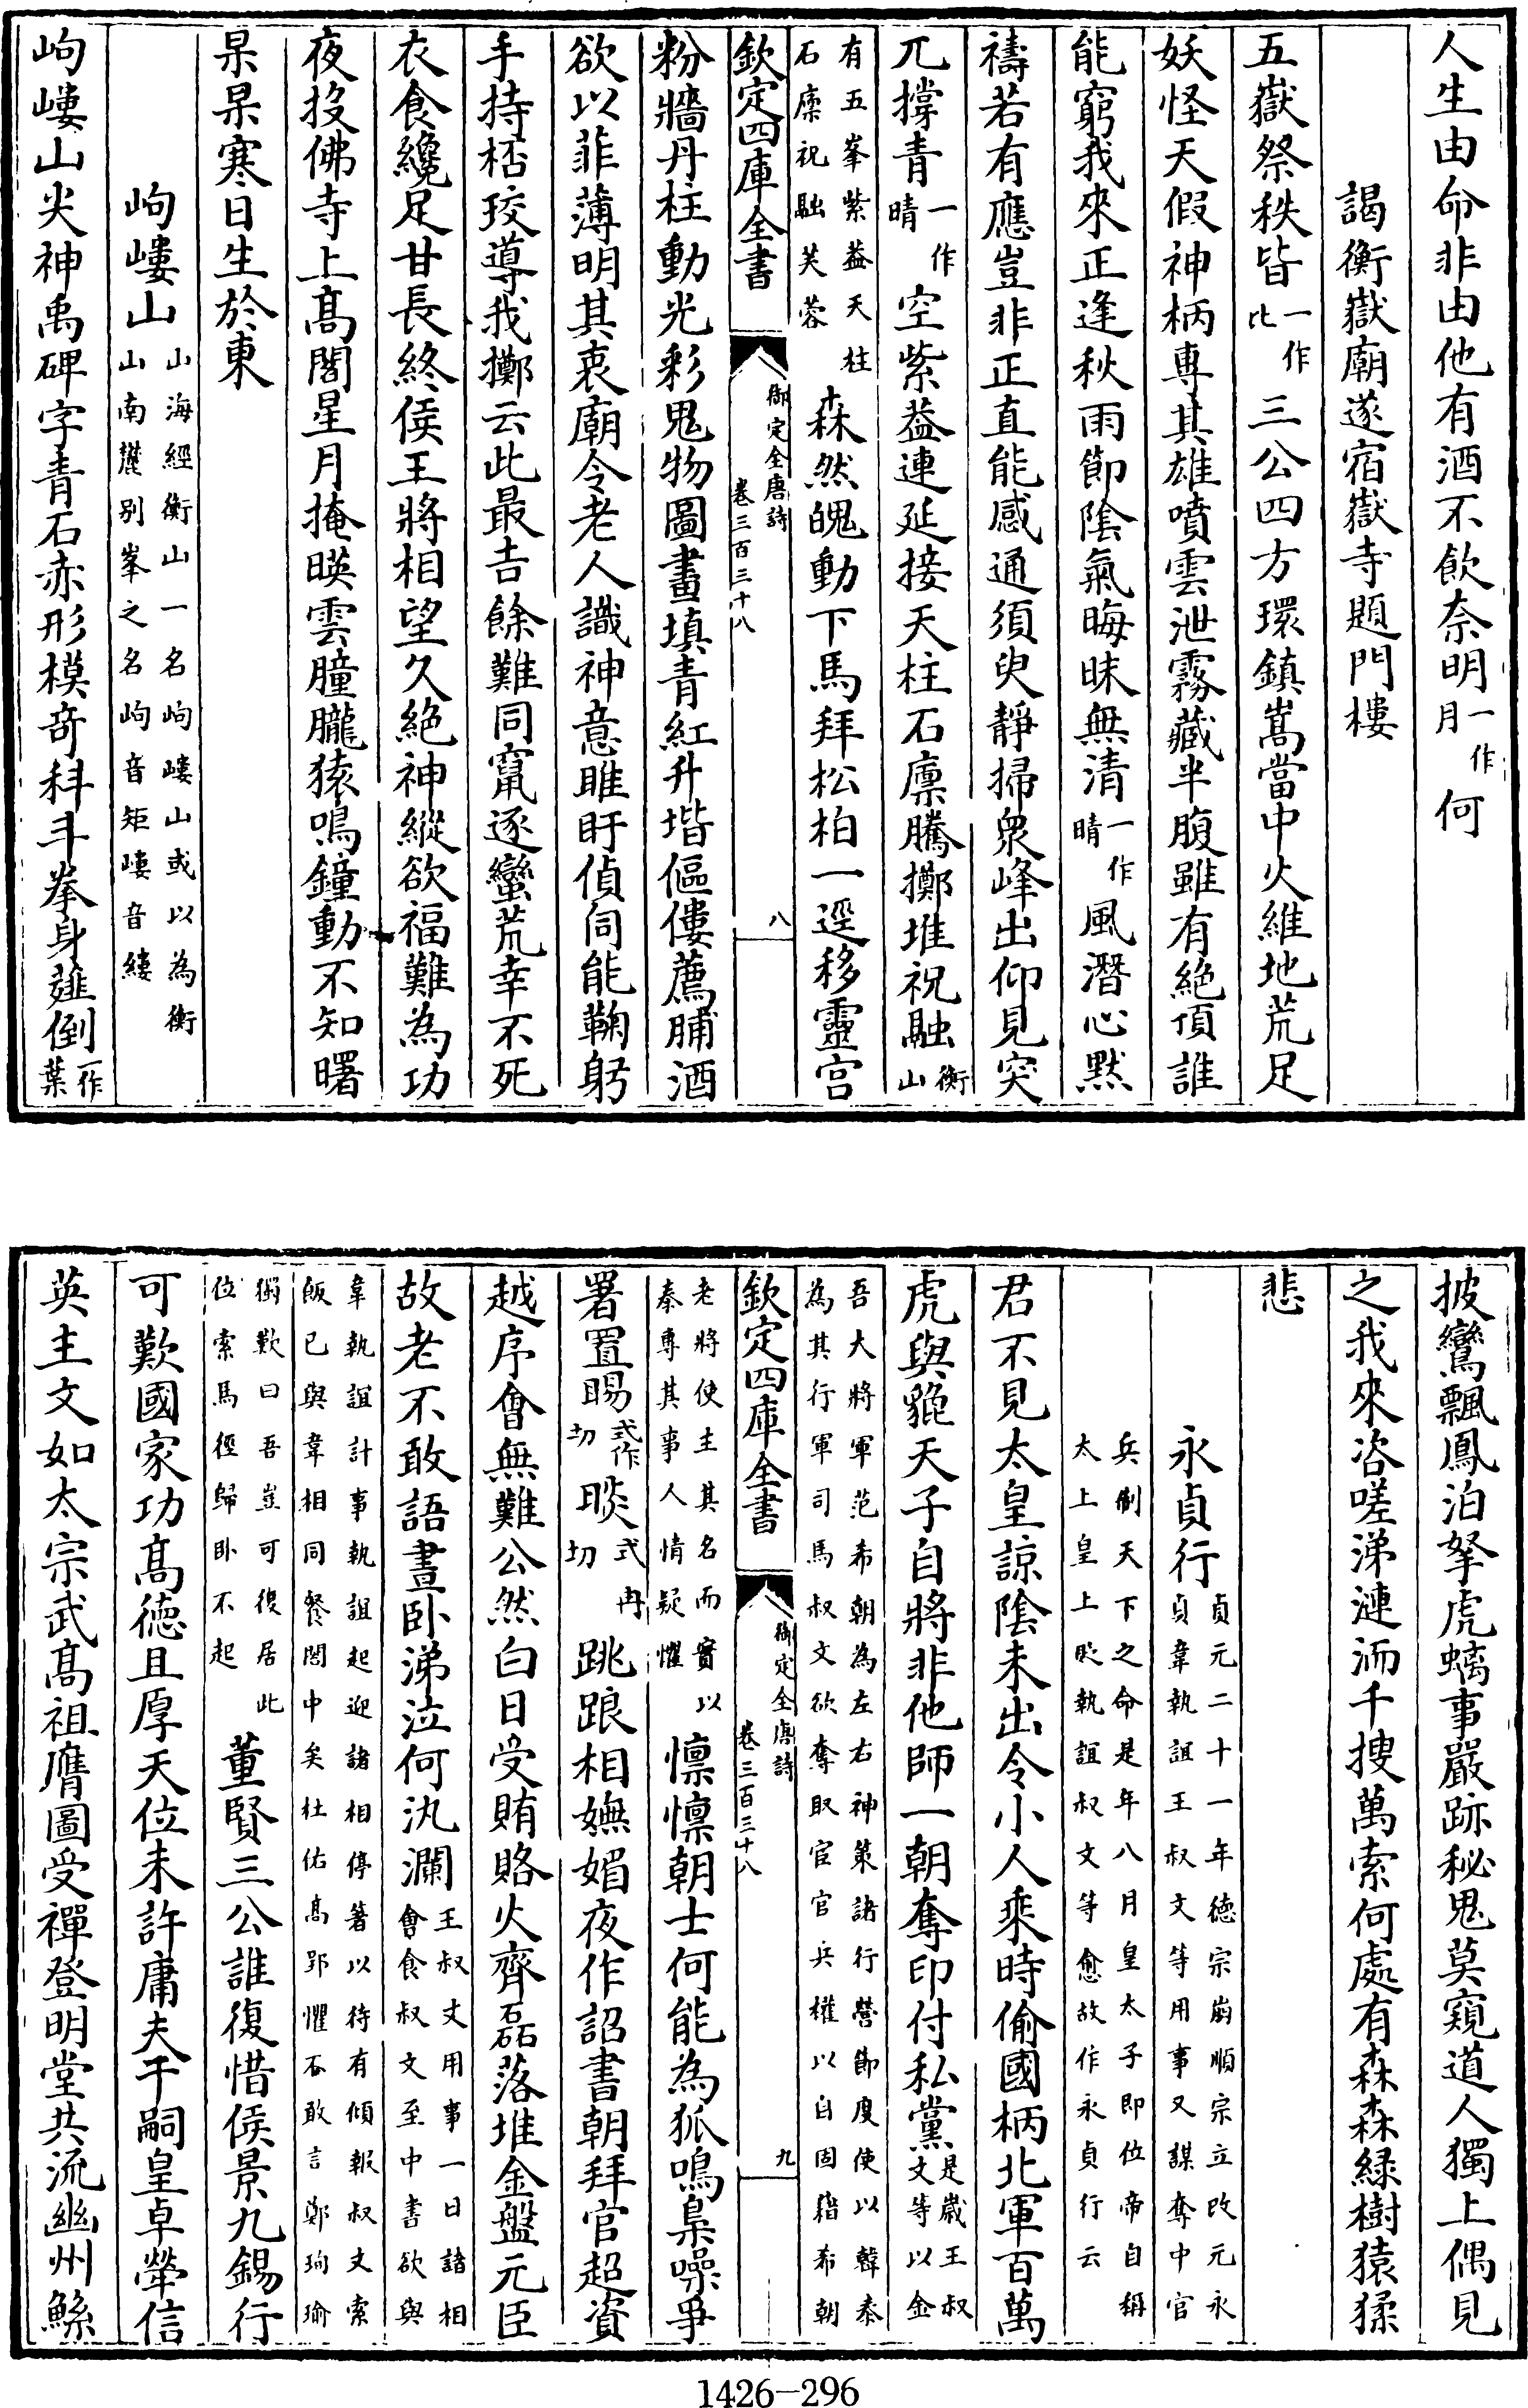 人生由命非由他有酒不飲奈明一作月何
謁衡嶽廟遂宿嶽寺題門樓
五嶽祭秩皆一作比三公四方環鎮嵩當中火維地荒足
妖怪天假神柄專其雄噴雲泄霧藏半腹雖有絶頂誰
能窮我來正逢秋雨節陰氣晦昧無清一作晴風潛心默
禱若有應豈非正直能感通須臾靜掃衆峰出仰見突
兀撐青一作晴空紫葢連延接天柱石廪騰擲堆祝融衡山
有五峯紫葢天柱石廪祝融芙蓉森然魄動下馬拜松柏一逕移靈宫
欽定四庫全書 御定全唐詩卷三百三十八 八
粉牆丹柱動光彩鬼物圖畫填青紅升堦傴僂薦脯酒
欲以菲薄明其衷廟令老人識神意睢盱偵伺能鞠躬
手持桮珓導我擲云此最吉餘難同竄逐蠻荒幸不死
衣食纔足甘長終侯王將相望久絶神縱欲福難為功
夜投佛寺上高閣星月掩暎雲朣朧猿鳴鐘動不知曙
杲杲寒日生於東
岣嶁山山海經衡山一名岣嶁山或以為衡山南麓别峯之名岣音矩嶁音縷
岣嶁山尖神禹碑字青石赤形模奇科斗拳身薤倒一作葉
披鸞飄鳳泊拏虎螭事嚴跡秘鬼莫窺道人獨上偶見
之我來咨嗟涕漣洏千搜萬索何處有森森緑樹猿猱
悲
永貞行貞元二十一年德宗崩順宗立改元永貞韋執誼王叔文等用事又謀奪中官
兵制天下之命是年八月皇太子即位帝自稱太上皇上貶執誼叔文等愈故作永貞行云
君不見太皇諒陰未出令小人乘時偷國柄北軍百萬
虎與貔天子自將非他師一朝奪印付私黨是歳王叔文等以金
吾大將軍范希朝為左右神策諸行營節度使以韓泰為其行軍司馬叔文欲奪取宦官兵權以自固籍希朝
欽定四庫全書 御定全唐詩卷三百三十八 九
老將使主其名而實以泰專其事人情疑懼懍懍朝士何能為狐鳴梟噪爭
署置睗式作切睒式冉切跳踉相嫵媚夜作詔書朝拜官超資
越序曾無難公然白日受賄賂火齊磊落堆金盤元臣
故老不敢語晝卧涕泣何汍瀾王叔文用事一日諸相會食叔文至中書欲與
韋執誼計事執誼起迎諸相停箸以待有傾報叔文索飯已與韋相同餐閤中矣杜佑高郢懼不敢言鄭珣瑜
獨歎曰吾豈可復居此位索馬徑歸卧不起董賢三公誰復惜侯景九錫行
可歎國家功高德且厚天位未許庸夫干嗣皇卓犖信
英主文如太宗武高祖膺圖受禪登明堂共流幽州鯀
1426—296